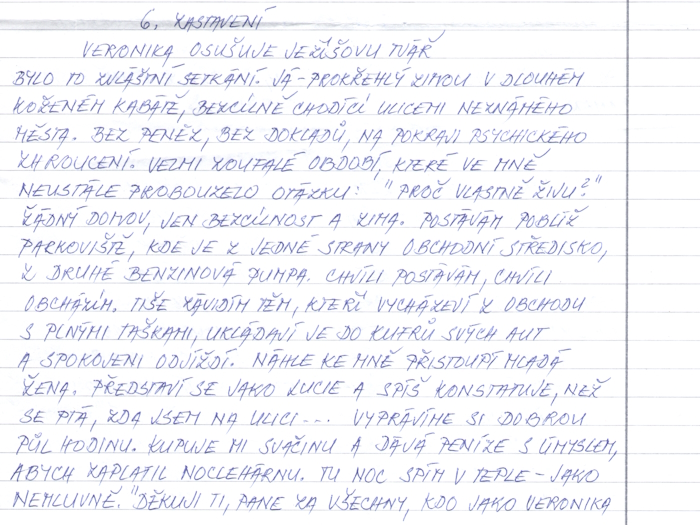 6. ZASTAVENÍ
VERONIKA OSUŠUJE JEŽÍŠOVU TVÁŘ
BYLO TO ZVLÁŠTNÍ SETKÁNÍ. JÁ-PROKŘEHLÝ ZIMOU V DLOUHÉM
KOŽENÉM KABÁTĚ, BEZCÍLNĚ CHODÍCÍ ULICEMI NEZNÁMÉHO
MĚSTA. BEZ PENĚZ, BEZ DOKLADŮ, NA POKRAJI PSYCHICKÉHO
ZHROUCENÍ. VELMI ZOUFALÉ OBDOBÍ, KTERÉ VE MNĚ
NEUSTÁLE PROBOUZELO OTÁZKU: "PROČ VLASTNĚ ŽIVU?"
ŽÁDNÝ DOMOV, JEN BEZCÍLNOST A ZIMA. POSTÁVÁM POBLÍŽ
PARKOVIŠTĚ, KDE JE Z JEDNÉ STRANY OBCHODNÍ STŘEDISKO,
Z DRUHÉ BENZINOVÁ PUMPA. CHVÍLI POSTÁVÁM, CHVÍLI
OBCHÁZÍM. TIŠE ZÁVIDÍM TĚM, KTEŘÍ VYCHÁZEJÍ Z OBCHODU
S PLNÝMI TAŠKAMI, UKLÁDAJÍ JE DO KUFRŮ SVÝCH AUT
A SPOKOJENI ODJÍŽDÍ. NÁHLE KE MNĚ PŘISTOUPÍ MLADÁ
ŽENA. PŘEDSTAVÍ SE JAKO LUCIE A SPÍŠ KONSTATUJE, NEŽ
SE PTÁ, ZDA JSEM NA ULICI... VYPRÁVÍME SI DOBROU
PŮL HODINU. KUPUJE MI SVAČINU A DÁVÁ PENÍZE S ÚMYSLEM,
ABYCH ZAPLATIL NOCLEHÁRNU. TU NOC SPÍM V TEPLE - JAKO
NEMLUVNĚ. "DĚKUJI TI, PANE ZA VŠECHNY, KDO JAKO VERONIKA